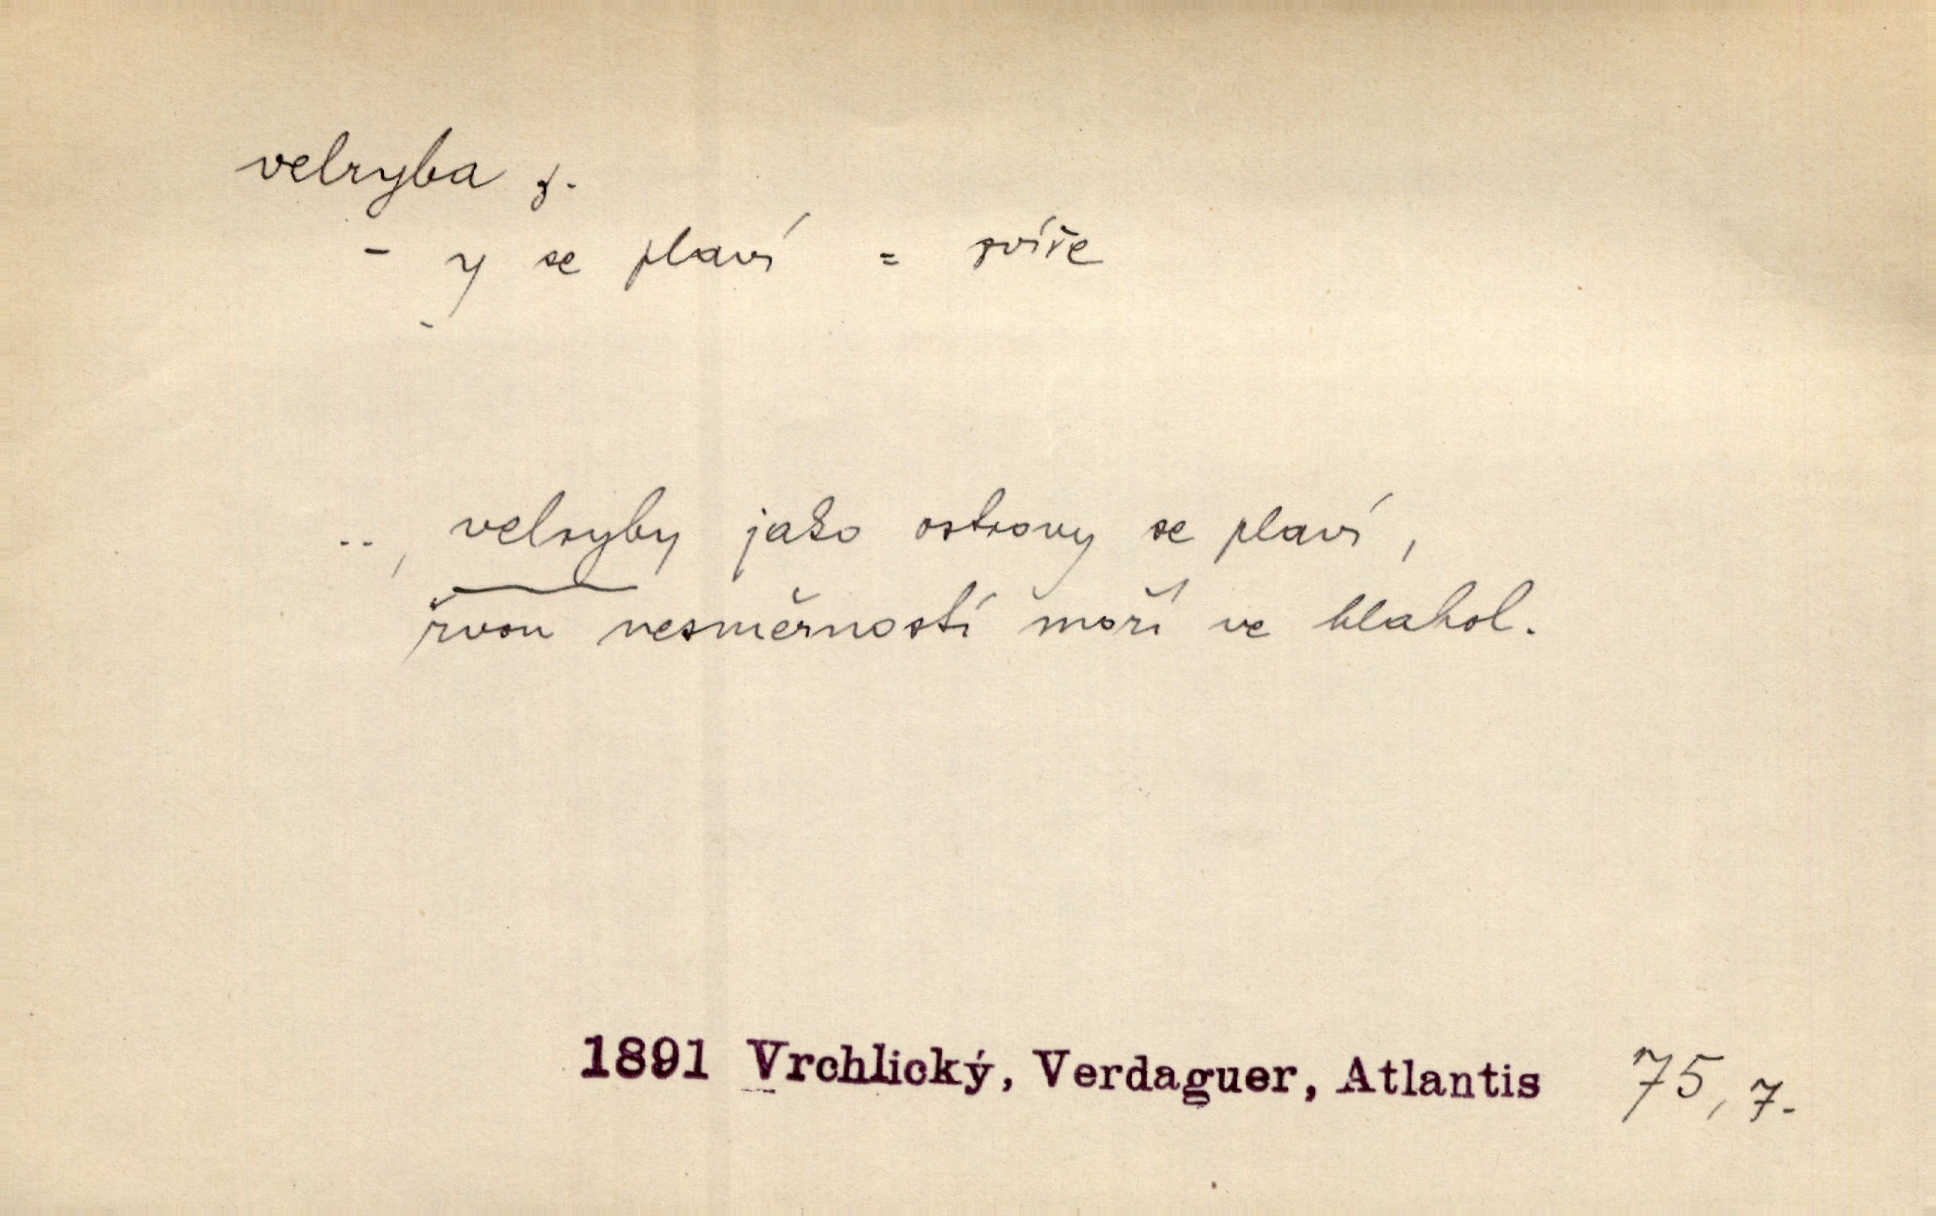 velryba ž.
- y se plaví = zvíře
.., velryby jako ostrovy se plaví,
řvou nesměrností moří ve hlahol.
1891 Vrchlický, Verdaguer, Atlantis 75, 7.